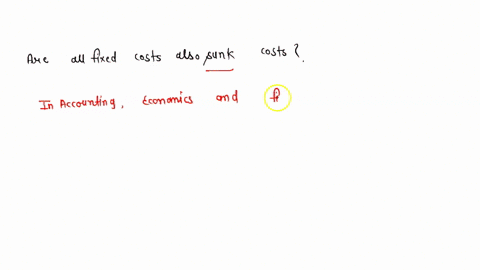 Are all fixed costs also sunk costs?.
In Accounting, Economics and fi